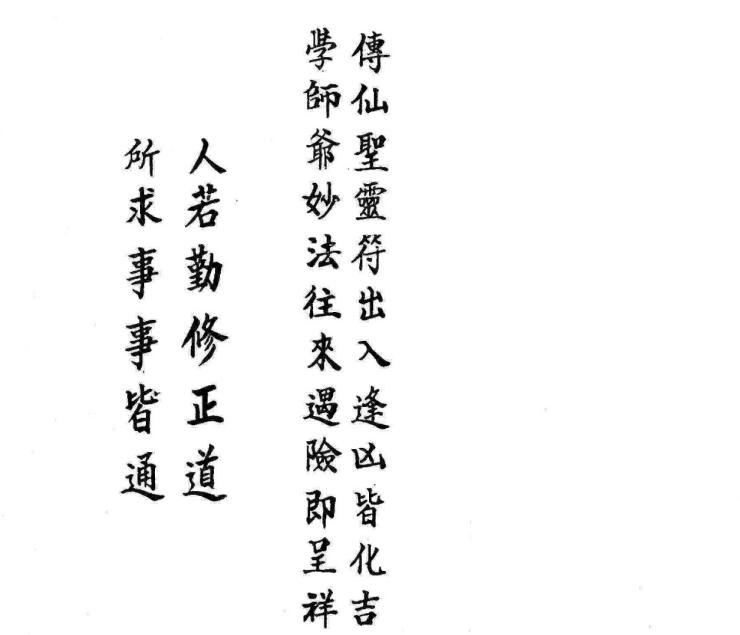 傳仙聖靈符出入逢凶皆化吉
學師爺妙法往來遇險即呈祥
人若勤修正道
所求事事皆通